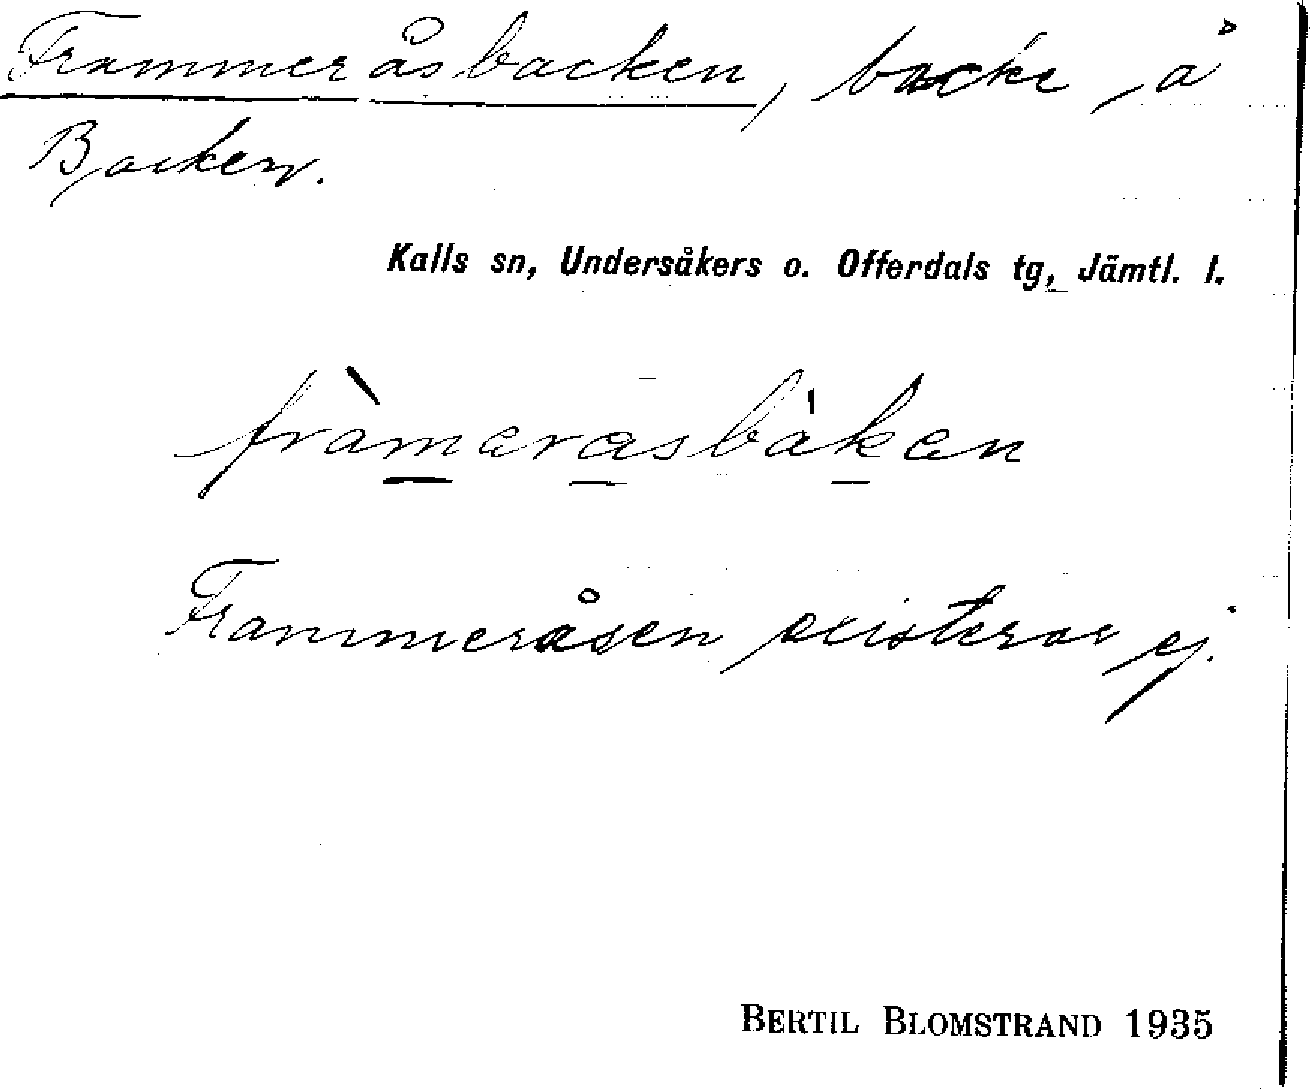 Frammeråsbacken, backe å
Backen.
Kalls sn, Undersåkers o. Offerdals tg, Jämtl. l.
fràmerasbáken
Frammeråsen existerar ej.
BERTIL BLOMSTRAND 1935